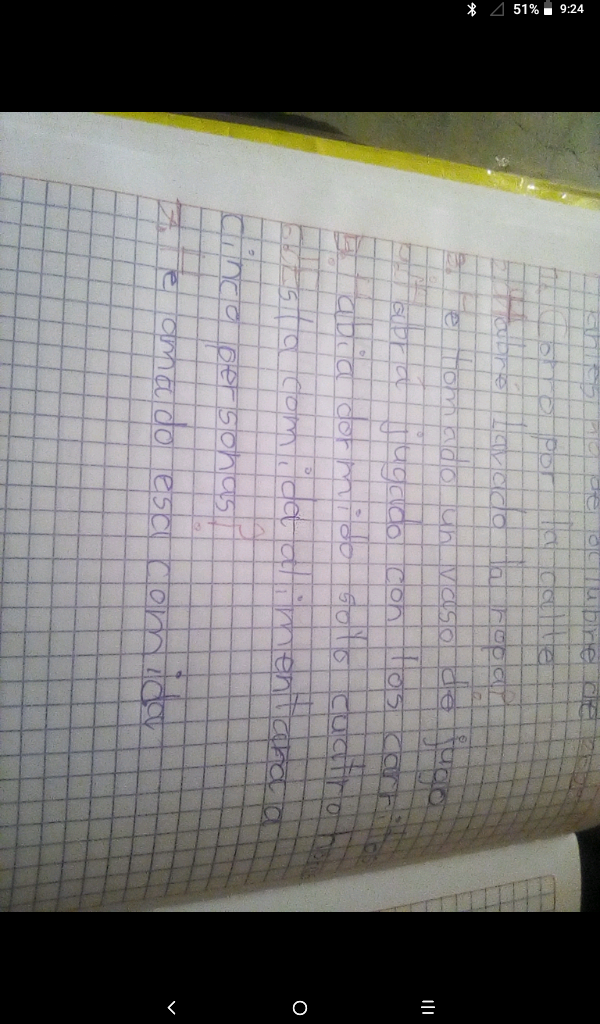 51% 9:24
de octubre de
1. Corro por la calle
2. Habré lavado la ropa?
3. He tomado un vaso de jugo
Habrá jugado con los carritos
Había dormido solo cuatro
Esta comida alimentara a
cinco personas?
7. He amado esa comida